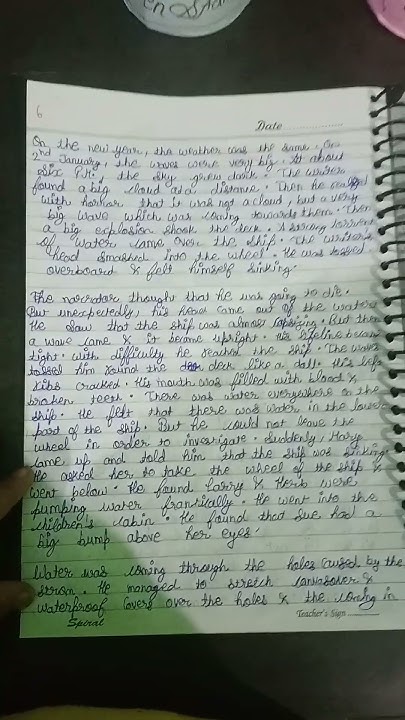 en Sta
6
Date
On the new year, the weather was the same. On
2nd January, the waves were very big. At about
six P.M., the sky grew dark. The writer
found a big cloud at a distance. Then he realised
with horror that it was not a cloud, but a very
big wave which was coming towards them. Then
a big explosion shook the deck. A strong torrent
of water came over the ship. The writer's
head smashed into the wheel. He was tossed
overboard & felt himself sinking.
The narrator thought that he was going to die.
But unexpectedly, his head came out of the water.
He saw that the ship was almost capsizing. But then
a wave came & it became upright. His lifeline became
tight. With difficulty he reached the ship. The wave
tossed him round the deck like a doll. His left
ribs cracked. His mouth was filled with blood &
broken teeth. There was water everywhere on the
ship. He felt that there was water in the lower
part of the ship. But he could not leave the
wheel in order to investigate. Suddenly Mary
came up and told him that the ship was sinking.
He asked her to take the wheel of the ship &
went below. He found Larry & Herb were
pumping water frantically. He went into the
children's cabin. He found that Sue had a
big bump above her eyes.
Water was coming through the holes caused by the
strom. He managed to stretch canvas &
waterproof covers over the holes & the coming in
Spiral
Teacher's Sign